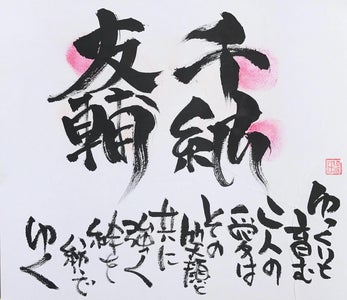 千
友輔
ゆっくりと
育む
二人の
愛は
その
笑顔と
共に
強く
絆を
ゆく